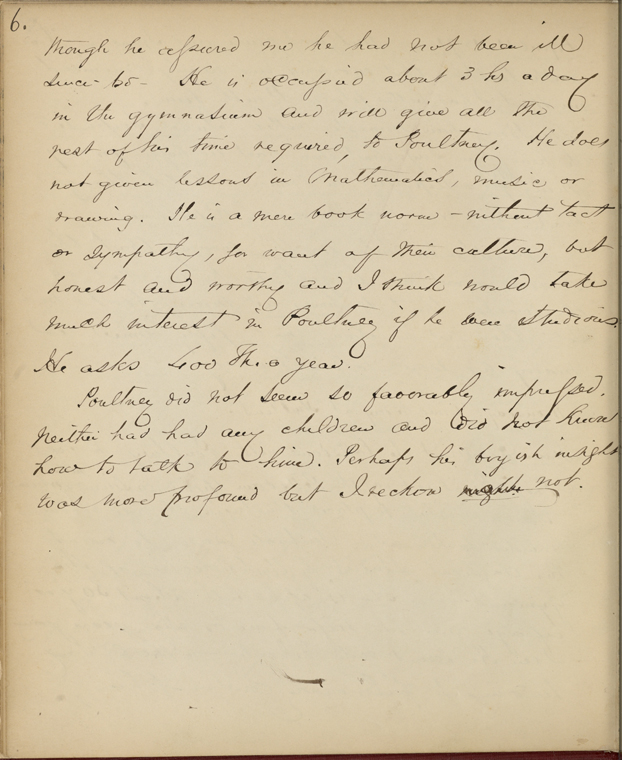 6.
though he assured me he had not been ill
since 65 - He is occupied about 3 hrs a day
in the gymnasium and will give all the
rest of his time required, to Poultney. He does
not given lessons in Mathematics, music or
drawing. He is a mere book worm - without tact
or sympathy, for want of their culture, but
honest and worthy and I think would take
much interest in Poultney if he were studious.
He asks 400 Th. a year.
Poultney did not seem so favorably impressed.
Neither had had any children and did not know
how to talk to him. Perhaps his boyish insight
was more profound but I reckon not.